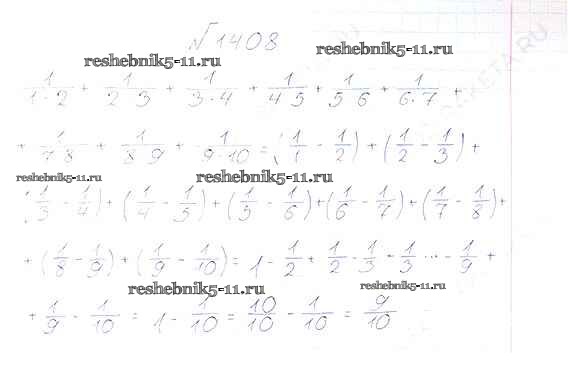 №1408
reshebnik5-11.ru
reshebnik5-11.ru
1/1·2 + 1/2·3 + 1/3·4 + 1/4·5 + 1/5·6 + 1/6·7 +
+ 1/7·8 + 1/8·9 + 1/9·10 = (1/1 - 1/2) + (1/2 - 1/3) +
reshebnik5-11.ru
reshebnik5-11.ru
(1/3 - 1/4) + (1/4 - 1/5) + (1/5 - 1/6) + (1/6 - 1/7) + (1/7 - 1/8) +
+ (1/8 - 1/9) + (1/9 - 1/10) = 1 - 1/2 + 1/2 - 1/3 - 1/3 ... - 1/9 +
reshebnik5-11.ru
reshebnik5-11.ru
+ 1/9 - 1/10 = 1 - 1/10 = 10/10 - 1/10 = 9/10